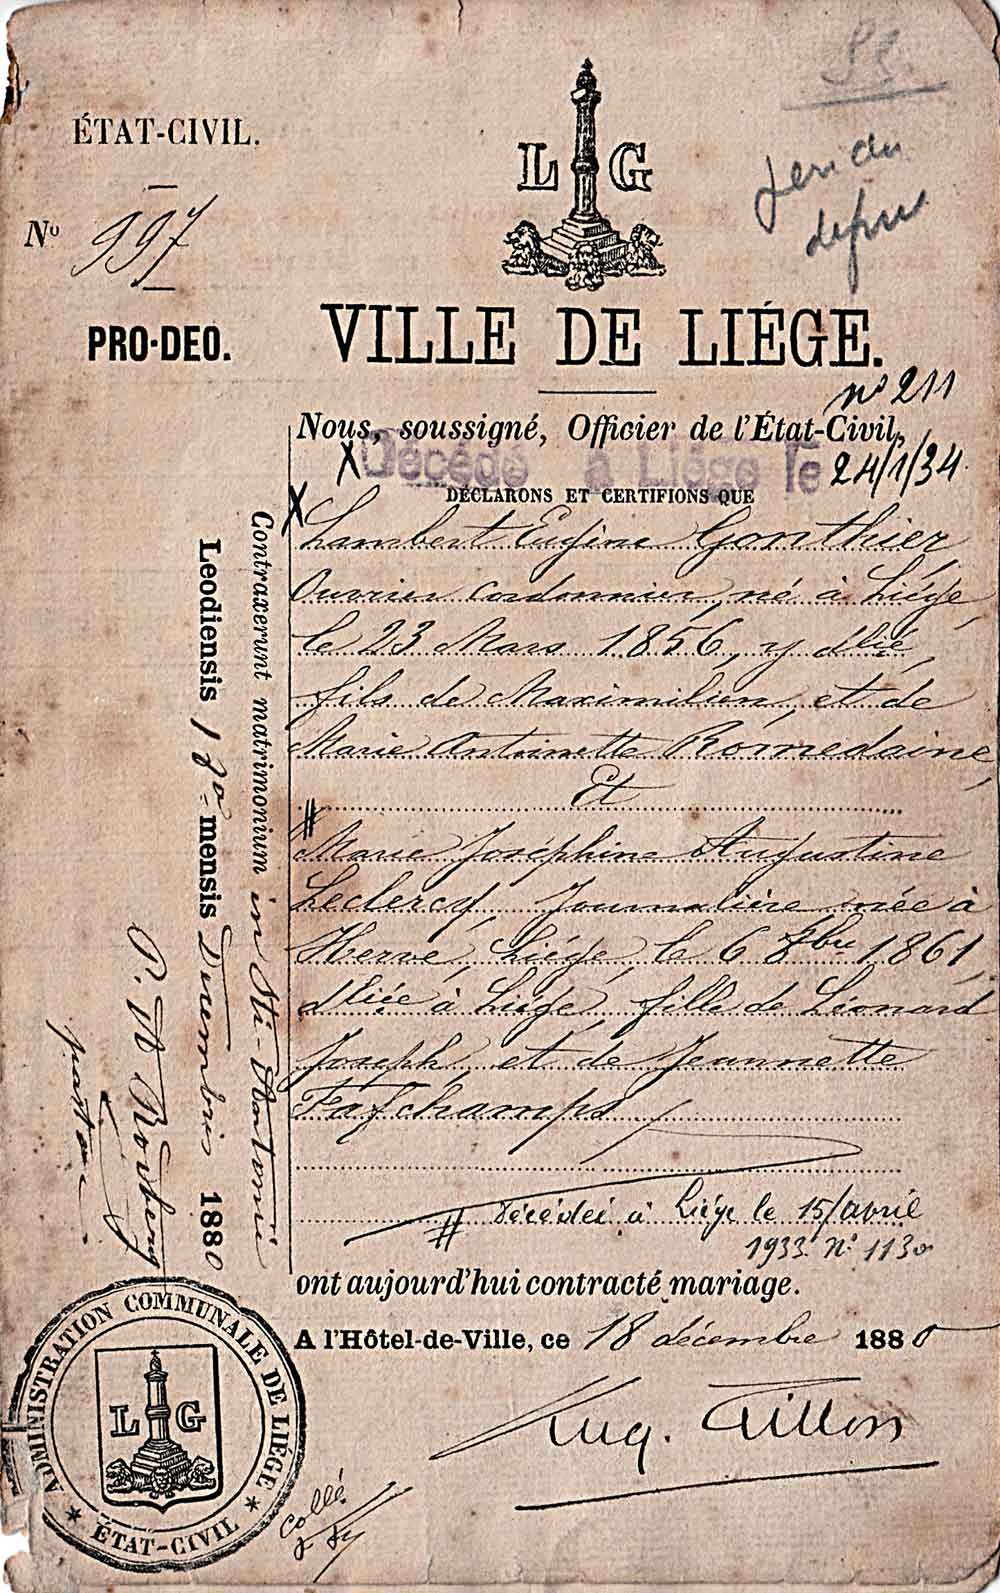 ÉTAT-CIVIL.
L G
Nº 997
PRO-DEO.
VILLE DE LIÉGE.
nº 211
Nous, soussigné, Officier de l'État-Civil,
Décédé à Liége le 24/1/34.
DÉCLARONS ET CERTIFIONS QUE
Lambert Eugène Gonthier,
Ouvrier cordonnier, né à Liége,
le 23 Mars 1856, y dlié,
fils de Maximilien, et de
Marie Antoinette Romedaine,
Et
Marie Joséphine Augustine
Leclercq, Journalière née à
Herve, Liége, le 6 8bre 1861,
dliée à Liége, fille de Léonard
Joseph, et de Jeannette
Fafchamps
# Décédée à Liége le 15/avril
1933. Nº 1130
ont aujourd'hui contracté mariage.
A l'Hôtel-de-Ville, ce 18 décembre 1880
Aug. Gillon
Contraxerunt matrimonium in Sti-Antonii
Leodiensis 18a mensis Decembris 1880
ADMINISTRATION COMMUNALE DE LIÉGE
L G
* ÉTAT-CIVIL *
collé